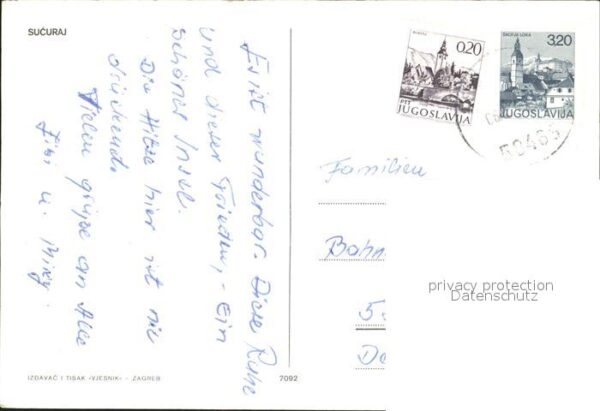 SUĆURAJ
Es ist wunderbar. Diese Ruhe
und dieser Frieden, - Ein
schöner Insel.
Die Hitze hier ist nie
drückend.
Vielen grüße an Alle
u.
IZDAVAČ I TISAK «VJESNIK» - ZAGREB
7092
BOHINJ
0,20
PTT
JUGOSLAVIJA
ŠKOFJA LOKA
3,20
JUGOSLAVIJA
Familien
Bahn
5
De
privacy protection
Datenschutz